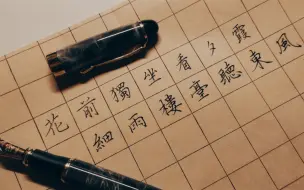 花前獨坐看夕霞
細雨樓臺聽東風